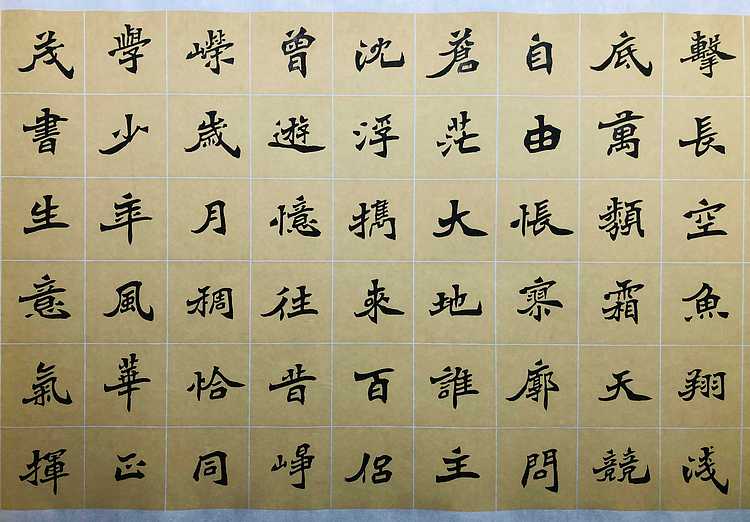 擊長空魚翔淺
底萬類霜天競
自由悵寥廓問
蒼茫大地誰主
沈浮攜來百侶
曾遊憶往昔崢
嶸歲月稠恰同
學少年風華正
茂書生意氣揮